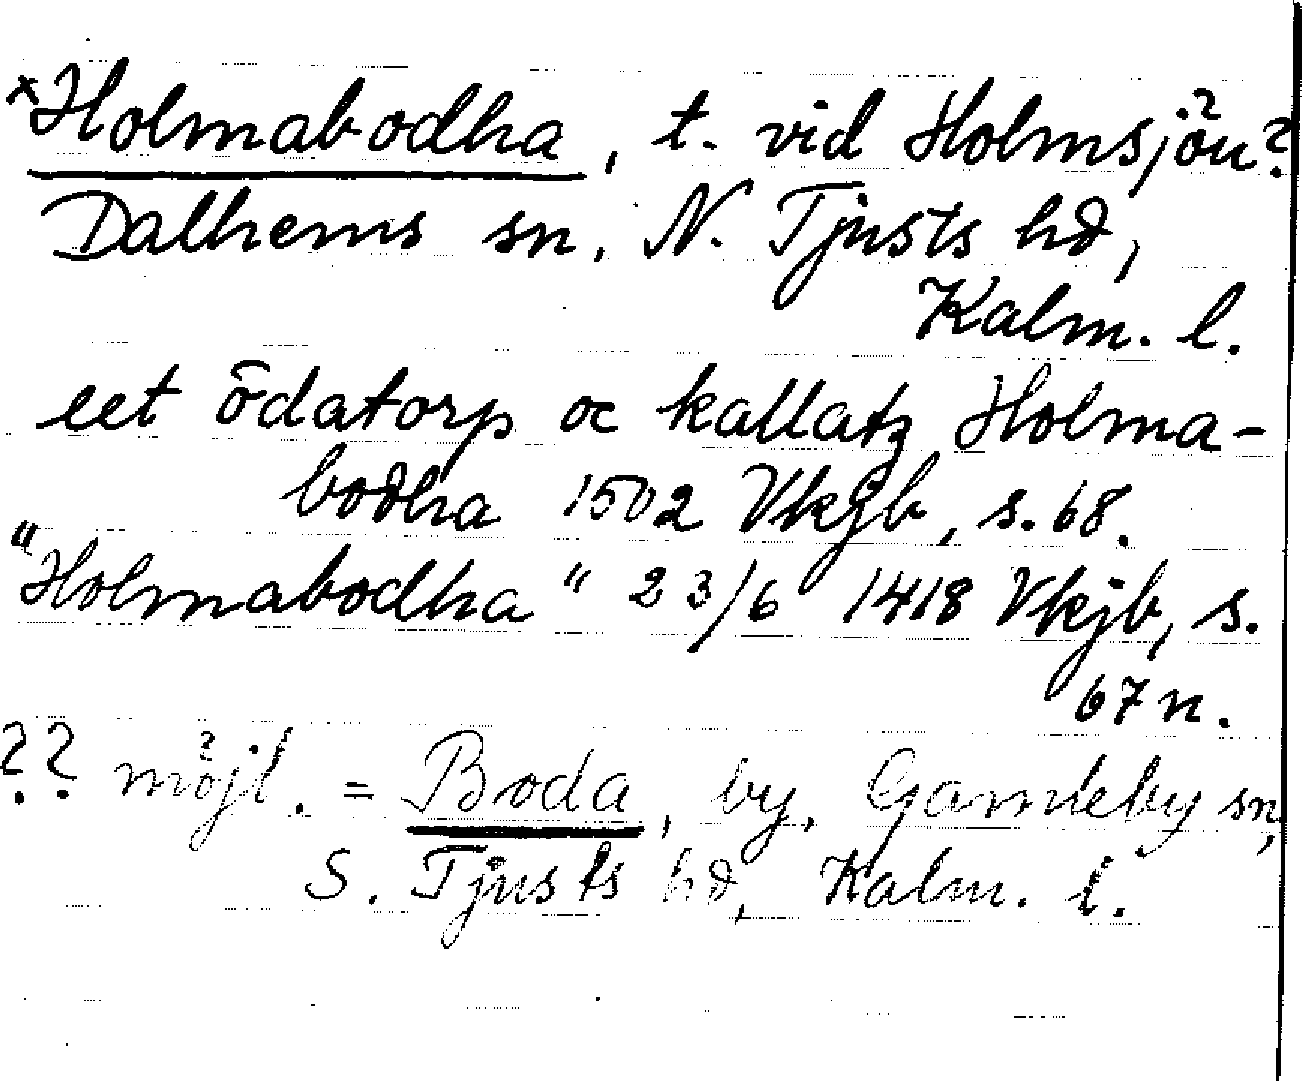 ×Holmabodha, t. vid Holmsjön?
Dalhems sn, N. Tjusts hd,
Kalm. l.
eet ödatorp oc kallatz Holma-
bodha 1502 Vkjb, s. 68.
"Holmabodha" 23/6 1418 Vkjb, s.
67 n.
?? möjl. = Boda, by, Gamleby sn,
S. Tjusts hd, Kalm. l.